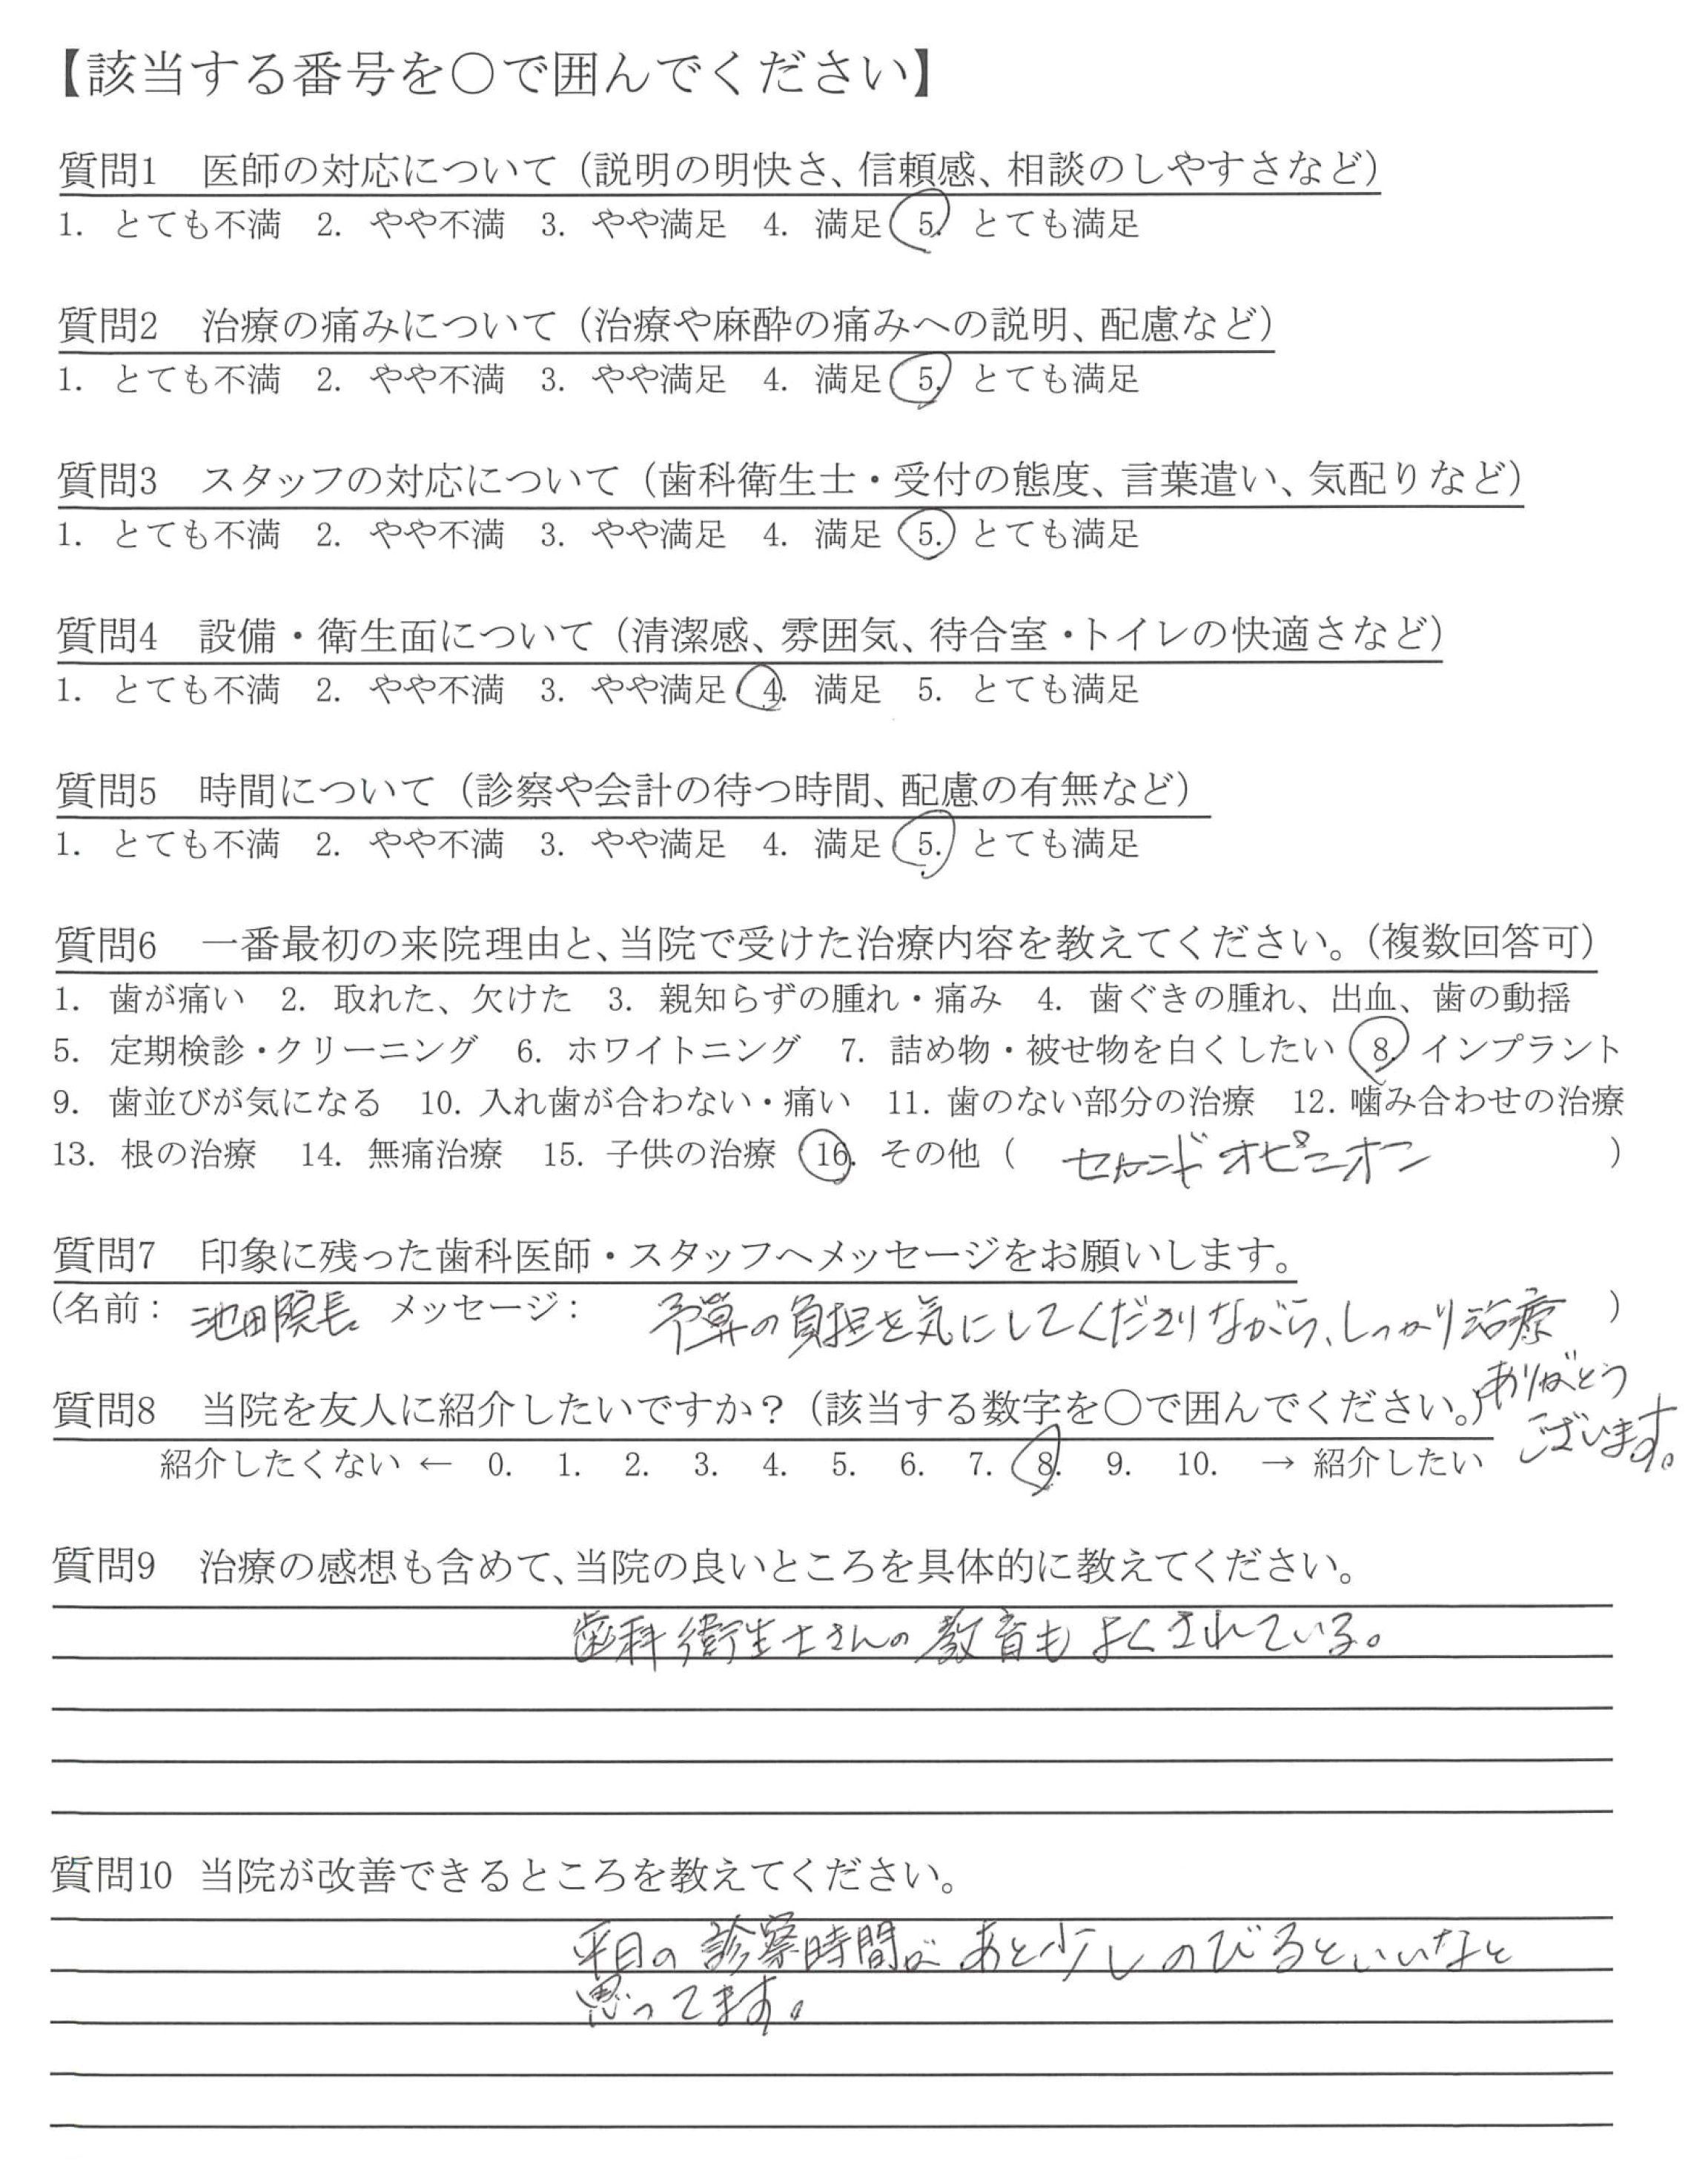 【該当する番号を〇で囲んでください】
質問1 医師の対応について（説明の明快さ、信頼感、相談のしやすさなど）
1. とても不満 2. やや不満 3. やや満足 4. 満足 5. とても満足
質問2 治療の痛みについて（治療や麻酔の痛みへの説明、配慮など）
1. とても不満 2. やや不満 3. やや満足 4. 満足 5. とても満足
質問3 スタッフの対応について（歯科衛生士・受付の態度、言葉遣い、気配りなど）
1. とても不満 2. やや不満 3. やや満足 4. 満足 5. とても満足
質問4 設備・衛生面について（清潔感、雰囲気、待合室・トイレの快適さなど）
1. とても不満 2. やや不満 3. やや満足 4. 満足 5. とても満足
質問5 時間について（診察や会計の待つ時間、配慮の有無など）
1. とても不満 2. やや不満 3. やや満足 4. 満足 5. とても満足
質問6 一番最初の来院理由と、当院で受けた治療内容を教えてください。（複数回答可）
1. 歯が痛い 2. 取れた、欠けた 3. 親知らずの腫れ・痛み 4. 歯ぐきの腫れ、出血、歯の動揺
5. 定期検診・クリーニング 6. ホワイトニング 7. 詰め物・被せ物を白くしたい 8. インプラント
9. 歯並びが気になる 10. 入れ歯が合わない・痛い 11. 歯のない部分の治療 12. 噛み合わせの治療
13. 根の治療 14. 無痛治療 15. 子供の治療 16. その他（ セカンドオピニオン ）
質問7 印象に残った歯科医師・スタッフへメッセージをお願いします。
(名前： 池田院長 メッセージ： 予算の負担を気にしてくださりながら、しっかり治療 ）
ありがとう
ございます。
質問8 当院を友人に紹介したいですか？（該当する数字を〇で囲んでください。）
紹介したくない ← 0. 1. 2. 3. 4. 5. 6. 7. 8. 9. 10. → 紹介したい
質問9 治療の感想も含めて、当院の良いところを具体的に教えてください。
歯科衛生士さんの教育もよくされている。
質問10 当院が改善できるところを教えてください。
平日の診察時間があと少しのびるといいなと
思ってます。